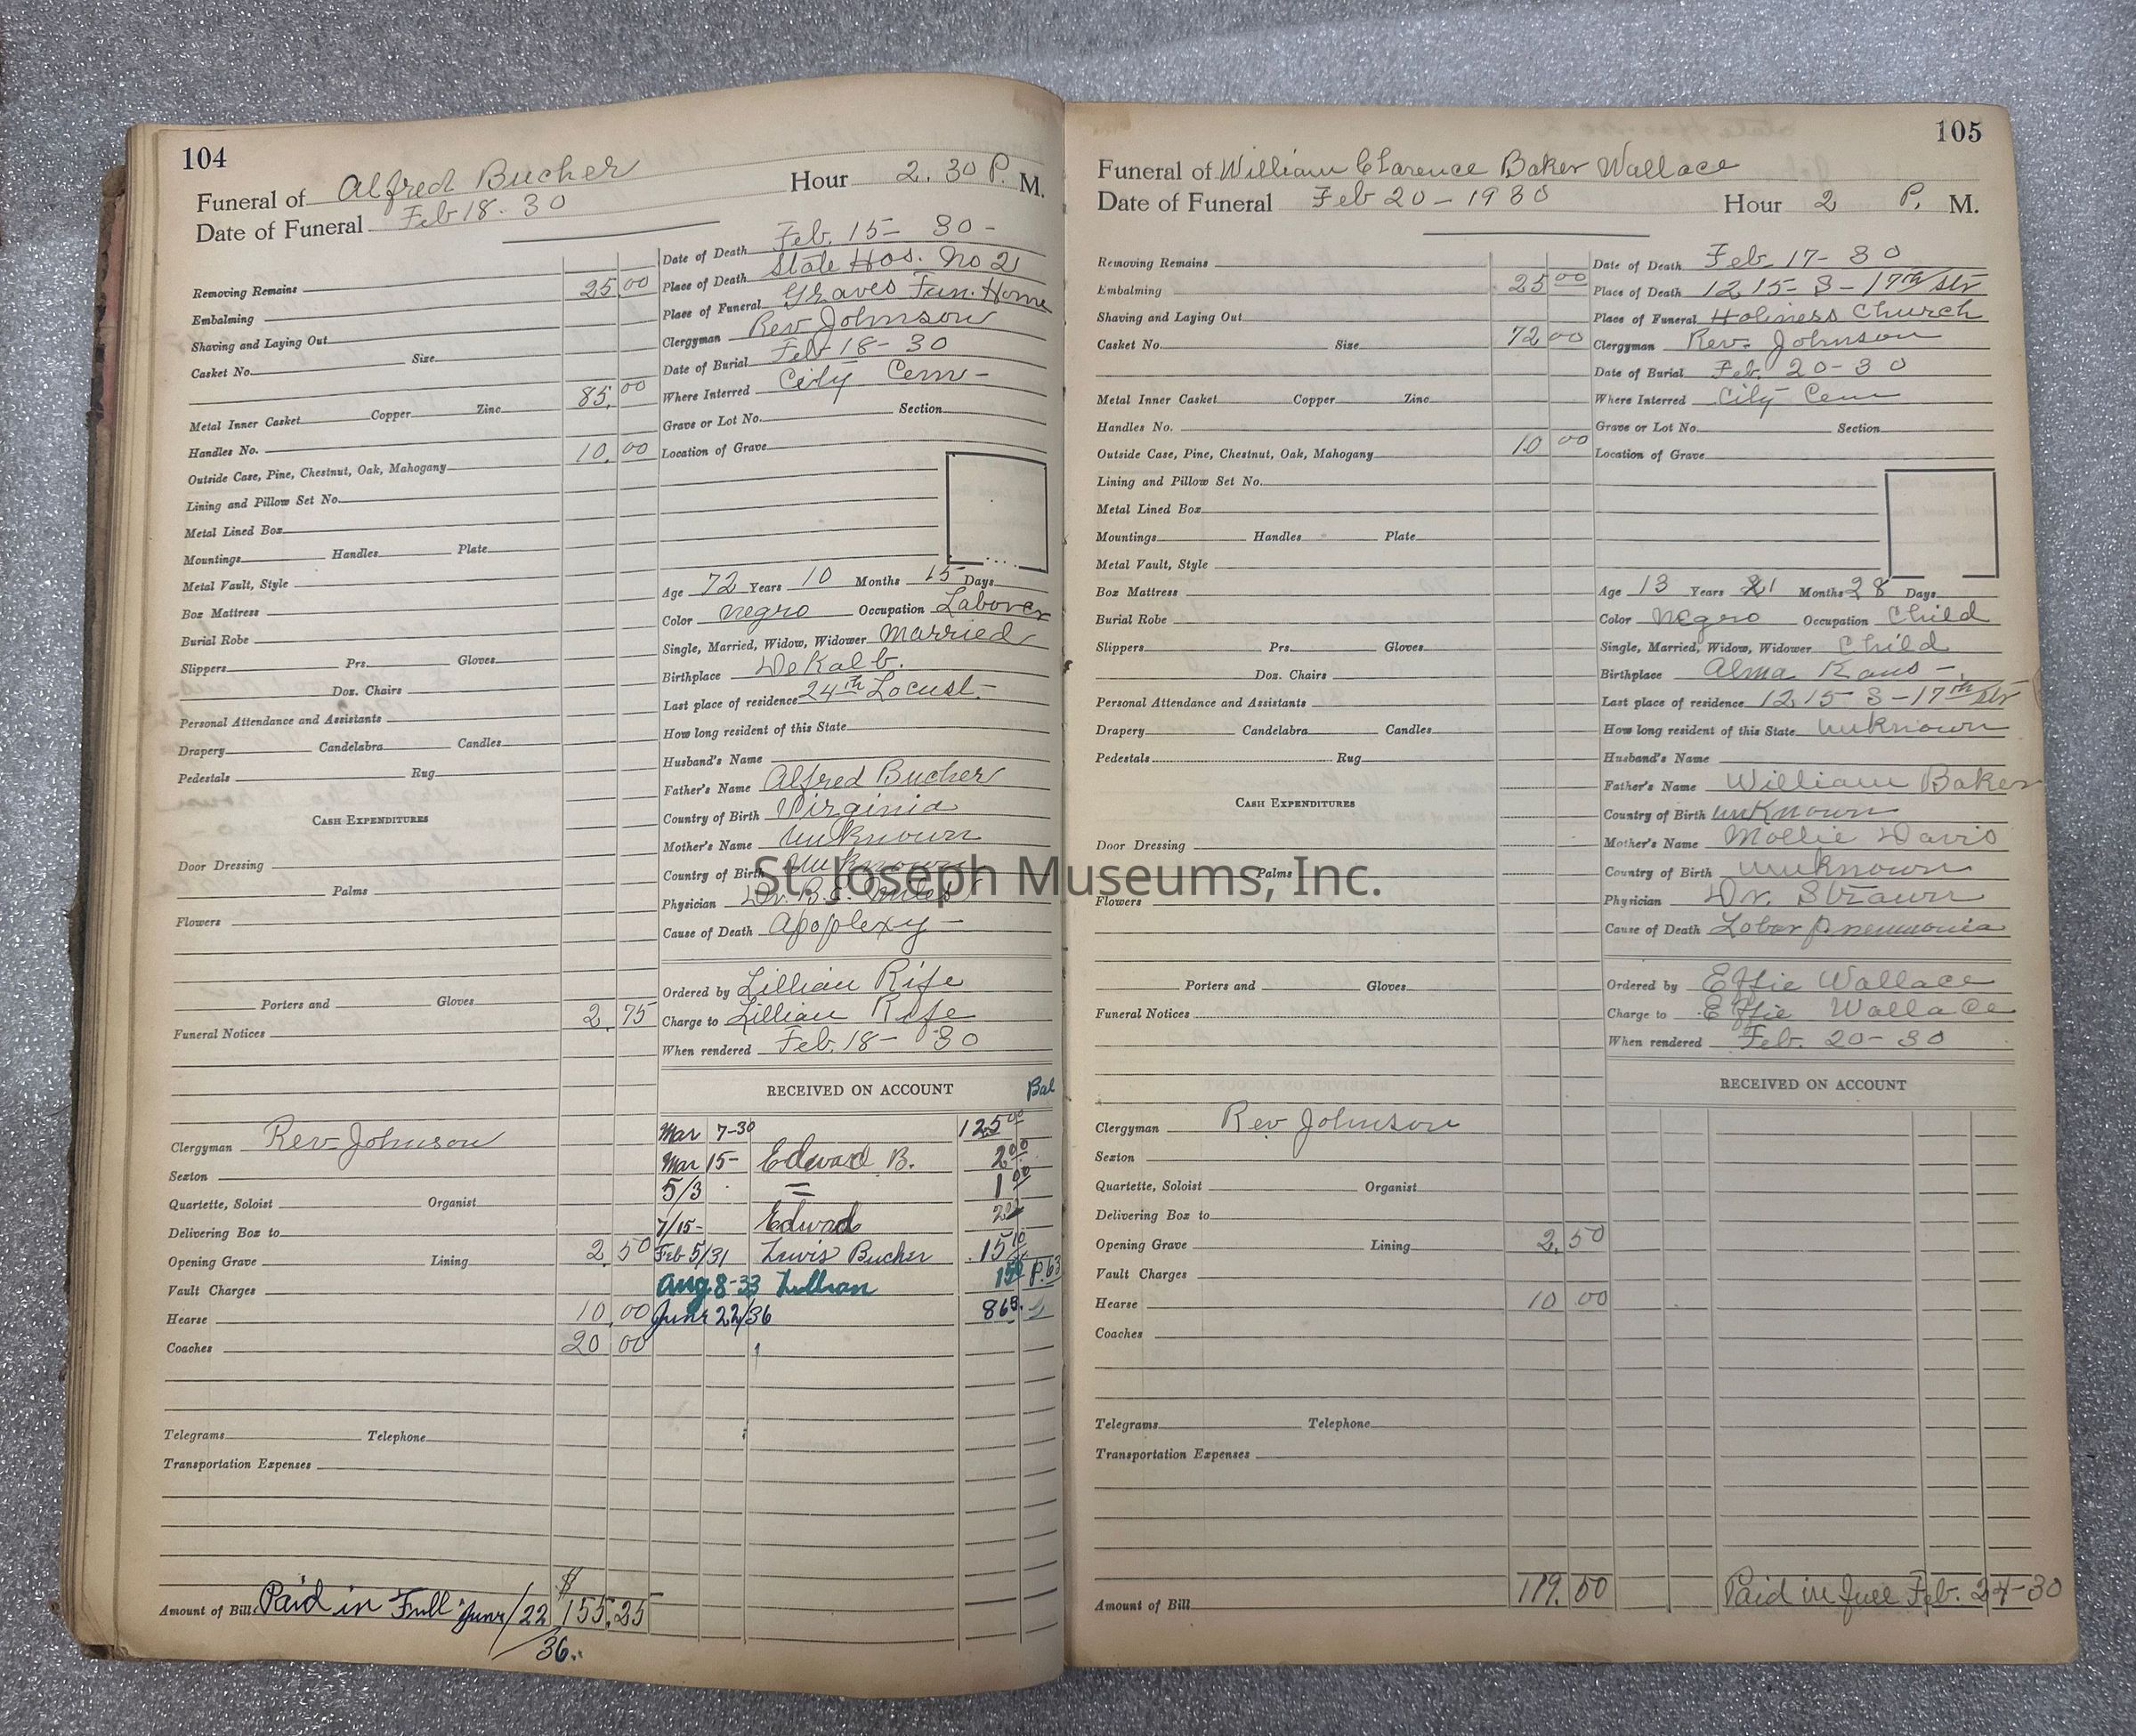 104
Funeral of Alfred Bucher Hour 2.30 P. M.
Date of Funeral Feb 18-30
Removing Remains
Embalming 25.00
Shaving and Laying Out
Casket No. Size
85.00
Metal Inner Casket Copper Zinc
Handles No. 10.00
Outside Case, Pine, Chestnut, Oak, Mahogany
Lining and Pillow Set No.
Metal Lined Box
Mountings Handles Plate
Metal Vault, Style
Box Mattress
Burial Robe
Slippers Prs. Gloves
Doz. Chairs
Personal Attendance and Assistants
Drapery Candelabra Candles
Pedestals Rug
CASH EXPENDITURES
Door Dressing
Palms
Flowers
Porters and Gloves
Funeral Notices 2.75
Clergyman Rev Johnson
Sexton
Quartette, Soloist Organist
Delivering Box to
Opening Grave Lining 2.50
Vault Charges
Hearse 10.00
Coaches 20.00
Telegrams Telephone
Transportation Expenses
Amount of Bill Paid in Full June/22/36. $155.25
Date of Death Feb. 15-30-
Place of Death State Hos. No 2
Place of Funeral Graves Fun. Home
Clergyman Rev Johnson
Date of Burial Feb 18-30
Where Interred City Cem-
Grave or Lot No. Section
Location of Grave
Age 72 Years 10 Months 15 Days
Color negro Occupation Laborer
Single, Married, Widow, Widower Married
Birthplace DeKalb.
Last place of residence 24th Locust-
How long resident of this State
Husband's Name
Father's Name Alfred Bucher
Country of Birth Virginia
Mother's Name Unknown
Country of Birth Unknown
Physician Dr. B.
Cause of Death Apoplexy-
Ordered by Lillian Rife
Charge to Lillian Rife
When rendered Feb. 18-30
RECEIVED ON ACCOUNT Bal
Mar 7-30 125 00
Mar 15- Edward B. 2 00
5/3 = 1 00
7/15- Edward
Feb 5/31 Lewis Bucher 15 10
Aug 8-33 Lillian P. 63
June 22/36
105
Funeral of William Clarence Baker Wallace
Date of Funeral Feb 20-1930 Hour 2 P. M.
Removing Remains
Embalming 25 00
Shaving and Laying Out
Casket No. Size 72 00
Metal Inner Casket Copper Zinc
Handles No.
Outside Case, Pine, Chestnut, Oak, Mahogany 10 00
Lining and Pillow Set No.
Metal Lined Box
Mountings Handles Plate
Metal Vault, Style
Box Mattress
Burial Robe
Slippers Prs. Gloves
Doz. Chairs
Personal Attendance and Assistants
Drapery Candelabra Candles
Pedestals Rug
CASH EXPENDITURES
Door Dressing
Palms
Flowers
Porters and Gloves
Funeral Notices
Clergyman Rev Johnson
Sexton
Quartette, Soloist Organist
Delivering Box to
Opening Grave Lining 2.50
Vault Charges
Hearse 10 00
Coaches
Telegrams Telephone
Transportation Expenses
Amount of Bill 119.50
Date of Death Feb 17-30
Place of Death 1215-S-17th Str
Place of Funeral Holiness Church
Clergyman Rev. Johnson
Date of Burial Feb. 20-30
Where Interred City Cem
Grave or Lot No. Section
Location of Grave
Age 13 Years 1 Months 28 Days
Color Negro Occupation Child
Single, Married, Widow, Widower Child
Birthplace Alma Kans-
Last place of residence 1215 S-17th Str
How long resident of this State unknown
Husband's Name
Father's Name William Baker
Country of Birth unknown
Mother's Name Mollie Davis
Country of Birth unknown
Physician Dr. Strawn
Cause of Death Lobar Pneumonia
Ordered by Effie Wallace
Charge to Effie Wallace
When rendered Feb. 20-30
RECEIVED ON ACCOUNT
Paid in full Feb. 24-30
St. Joseph Museums, Inc.